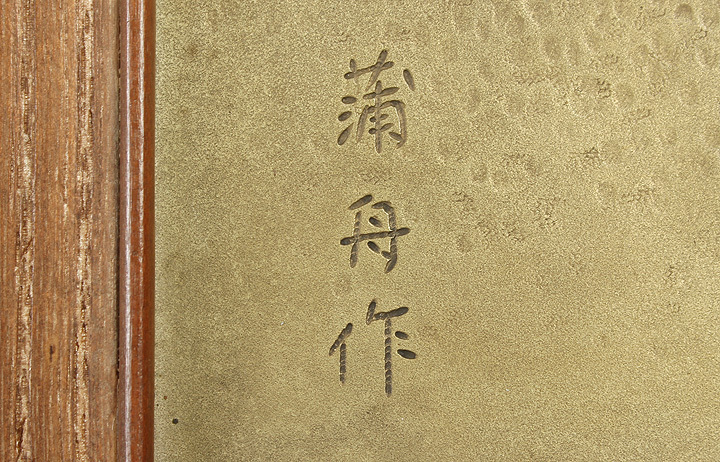 蒲舟作